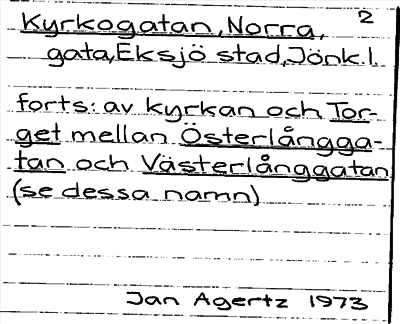 2
Kyrkogatan, Norra,
gata, Eksjö stad, Jönk.l.
forts: av kyrkan och Tor-
get mellan Österlångga-
tan och Västerlånggatan
(se dessa namn)
Jan Agertz 1973